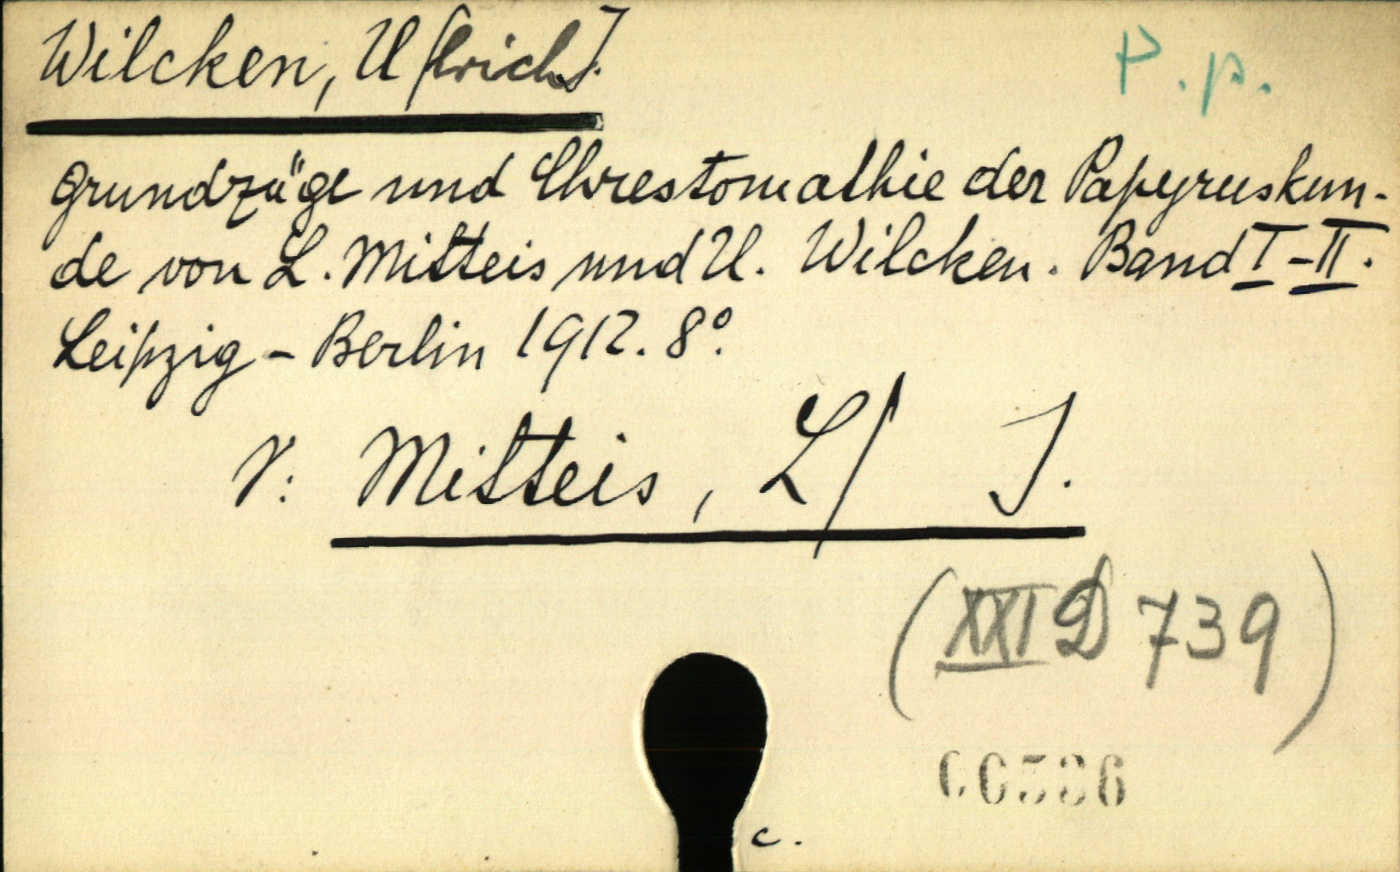 Wilcken, U[lrich].
P. p.
Grundzüge und Chrestomathie der Papyruskun-
de von L. Mitteis und U. Wilcken. Band I-II.
Leipzig - Berlin 1912. 8°.
V: Mitteis, L/ J.
(XXI D 739)
c.